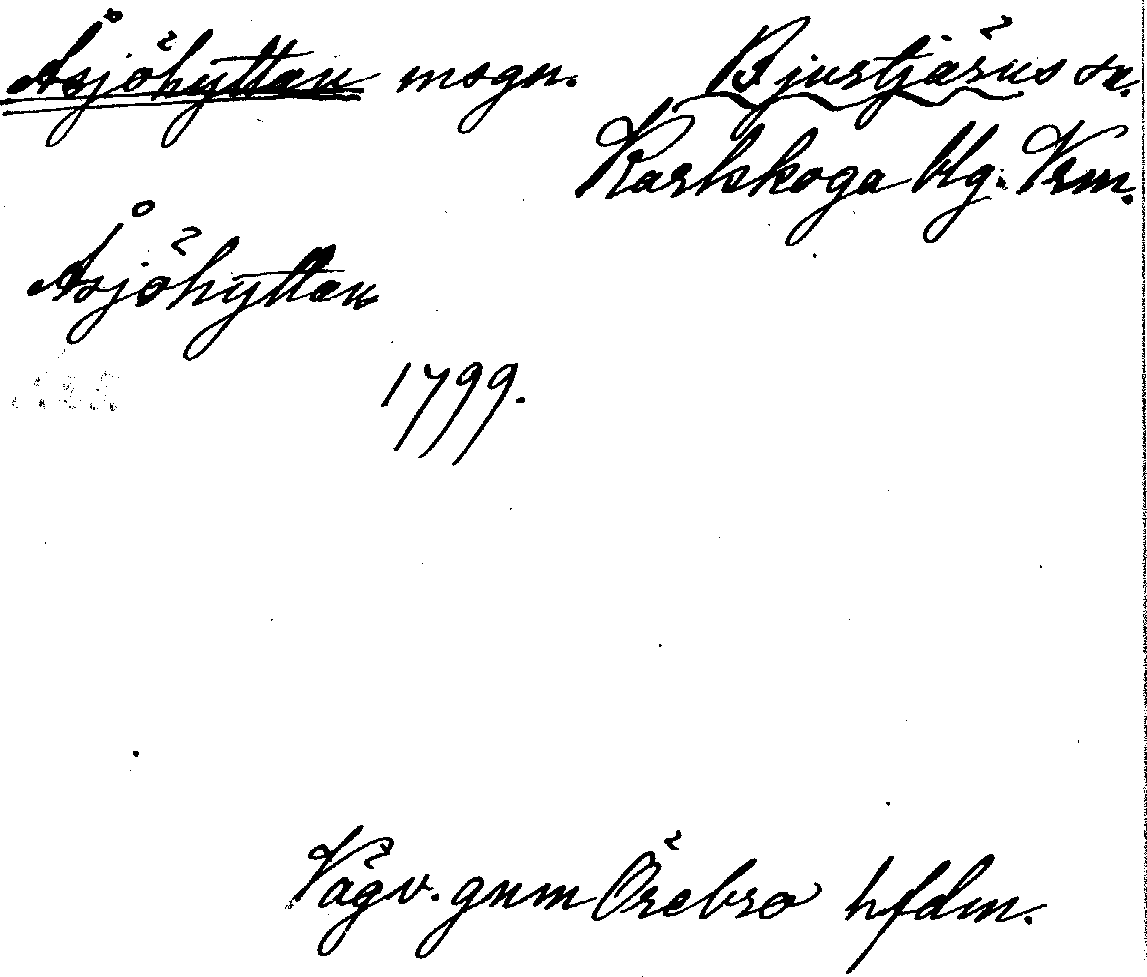 Åsjöhyttan msgn. Bjurtjärns sn.
Karlskoga blg. Vrm.
Åsjöhyttan
1799.
Vägv. gnm Örebro hfdm.